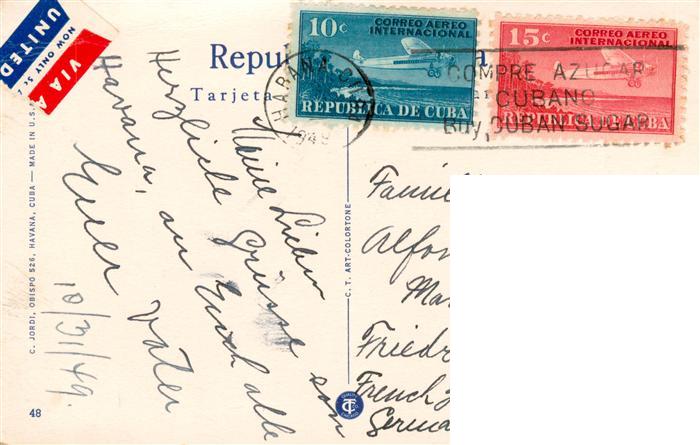 UNITED
NOW ONLY 5¢
VIA A
Repu
a
Tarjeta
10¢
CORREO AEREO
INTERNACIONAL
REPUBLICA DE CUBA
15¢
CORREO AEREO
INTERNACIONAL
REPUBLICA DE CUBA
HABANA
1949
COMPRE AZUCAR
CUBANO
BUY CUBAN SUGAR
Meine Lieben
Herzliche Grüsse von
Havana, an Euch alle
Euer Vater
10/31/49.
Famil
Alfon
Ma
Friedr
French Z
Germa
C. JORDI, OBISPO 526, HAVANA, CUBA — MADE IN U.S.
C. T. ART-COLORTONE
48